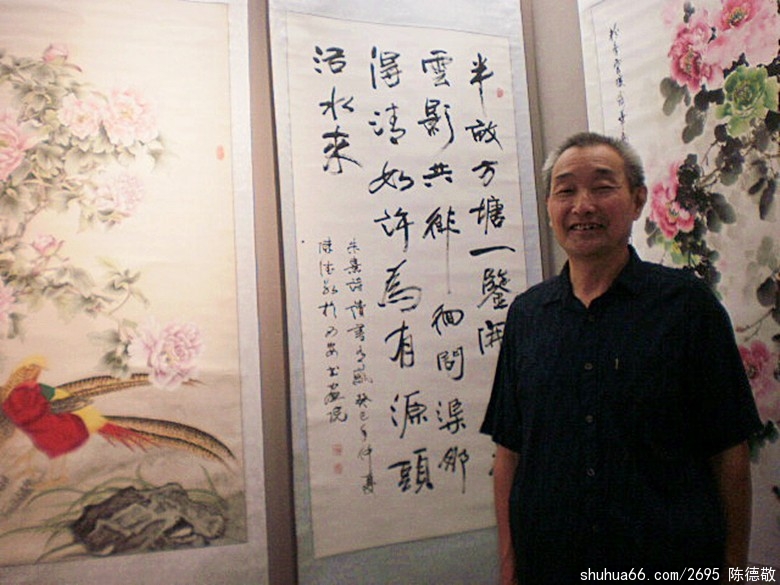 半畝方塘一鑒開
雲影共徘徊問渠那
得清如許為有源頭
活水來
朱熹詩讀書有感癸巳年仲夏
陳德敬於西安書畫院
shuhua66.com/2695 陈德敬